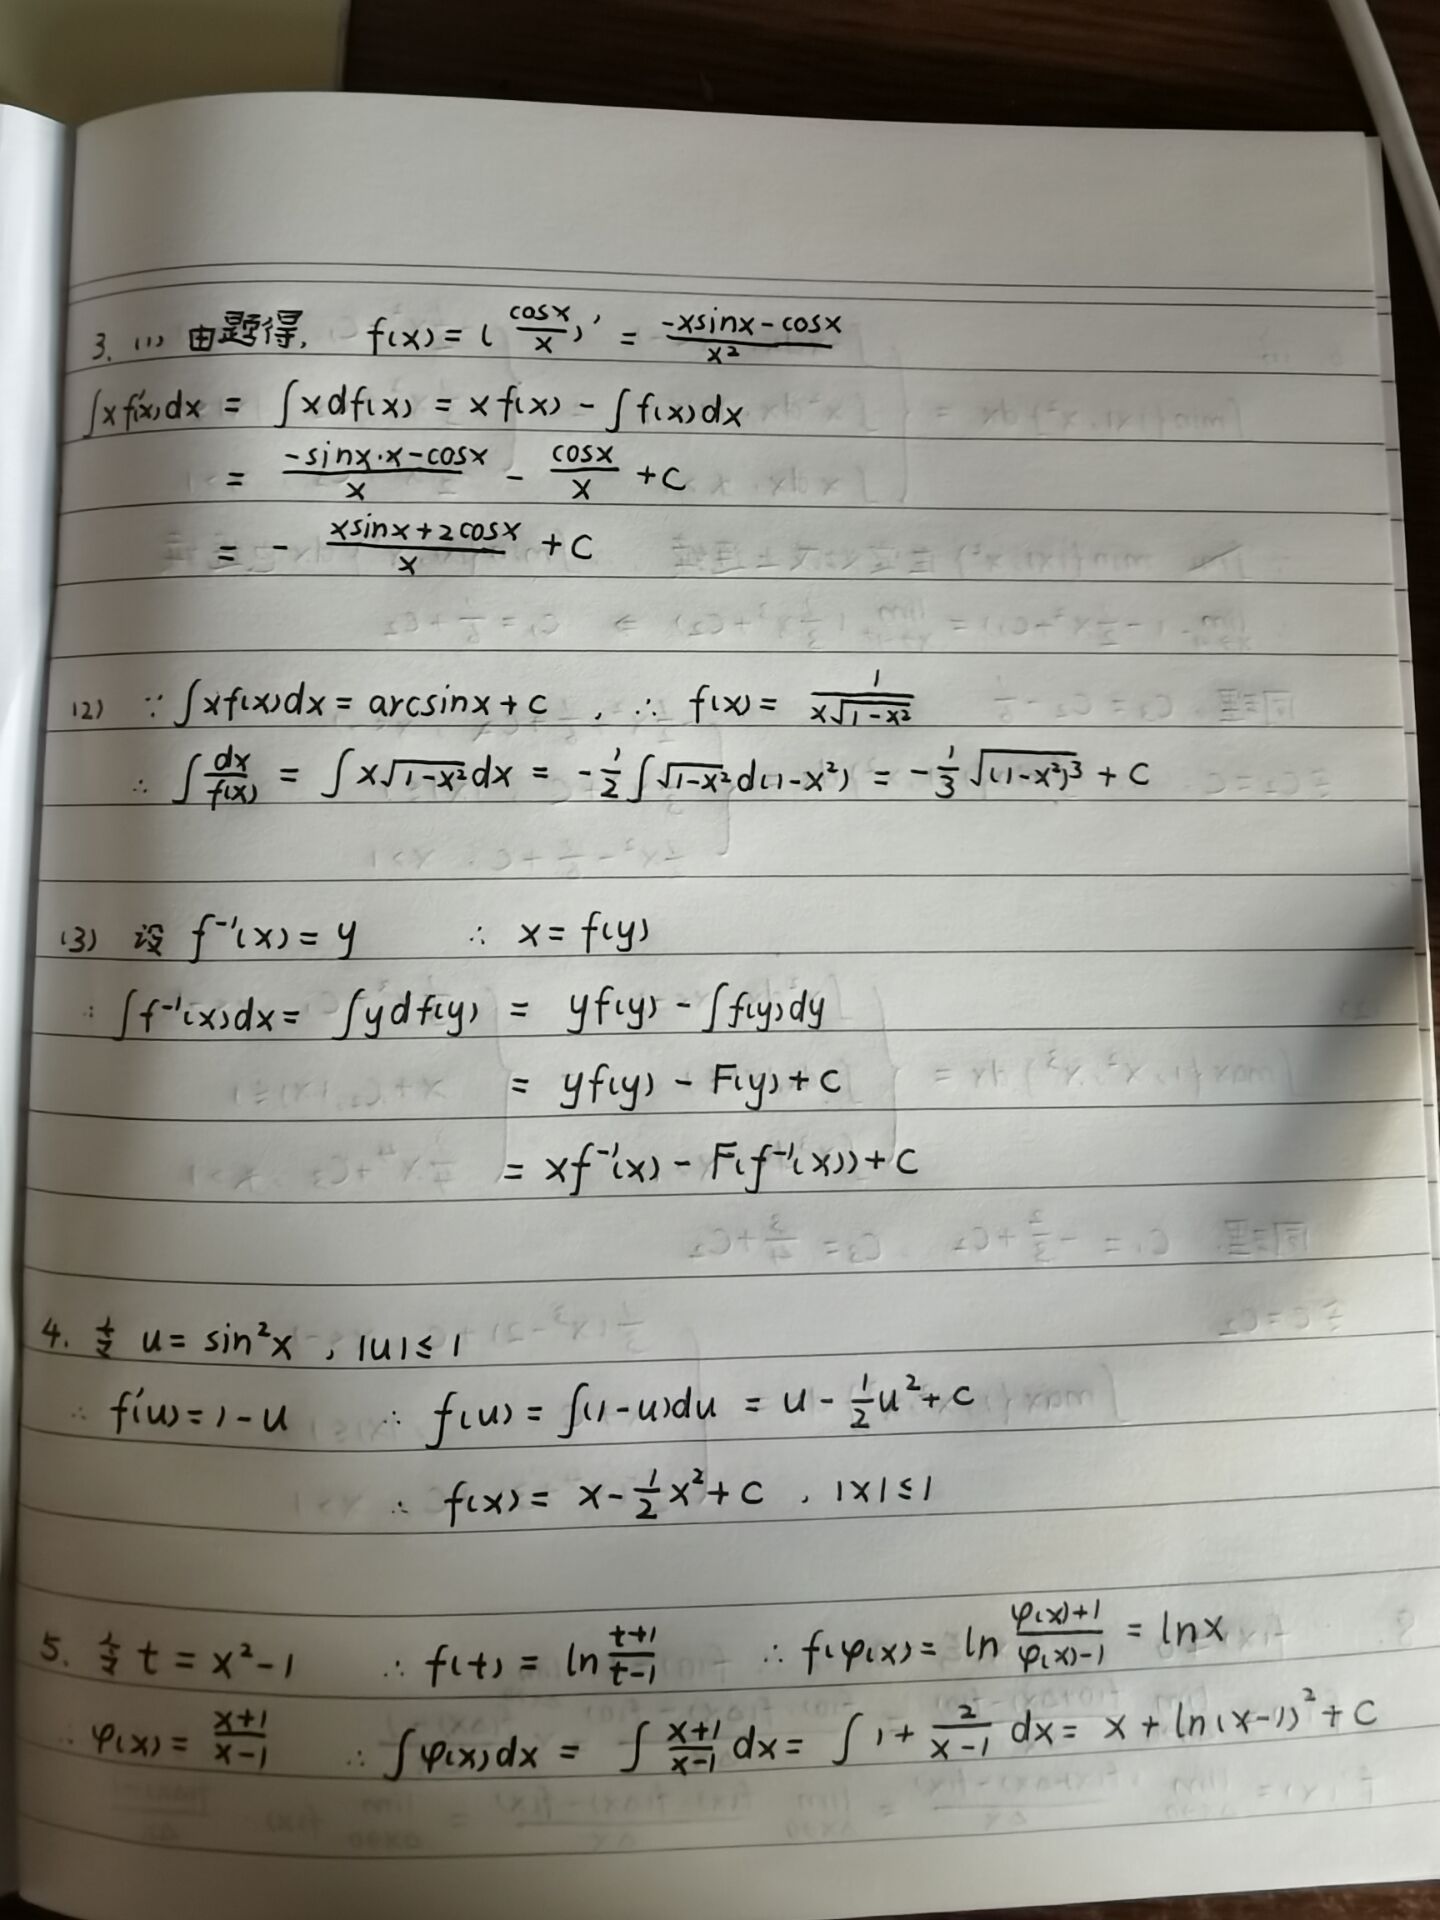 3. (1) 由题得, f(x) = (cosx/x)' = (-xsinx-cosx)/x²
∫xf'(x)dx = ∫xdf(x) = xf(x) - ∫f(x)dx
= (-sinx·x-cosx)/x - cosx/x + C
= - (xsinx+2cosx)/x + C
(2) ∵ ∫xf(x)dx = arcsinx + C , ∴ f(x) = 1/(x√(1-x²))
∴ ∫dx/f(x) = ∫x√(1-x²)dx = -1/2∫√(1-x²)d(1-x²) = -1/3√((1-x²)³) + C
(3) 设 f⁻¹(x) = y ∴ x = f(y)
∴ ∫f⁻¹(x)dx = ∫ydf(y) = yf(y) - ∫f(y)dy
= yf(y) - F(y) + C
= xf⁻¹(x) - F(f⁻¹(x)) + C
4. 令 u = sin²x , |u| ≤ 1
∴ f'(u) = 1-u ∴ f(u) = ∫(1-u)du = u - 1/2u² + C
∴ f(x) = x - 1/2x² + C , |x| ≤ 1
5. 令 t = x²-1 ∴ f(t) = ln (t+1)/(t-1) ∴ f(φ(x) = ln (φ(x)+1)/(φ(x)-1) = lnx
∴ φ(x) = (x+1)/(x-1) ∴ ∫φ(x)dx = ∫(x+1)/(x-1) dx = ∫1 + 2/(x-1) dx = x + ln(x-1)² + C